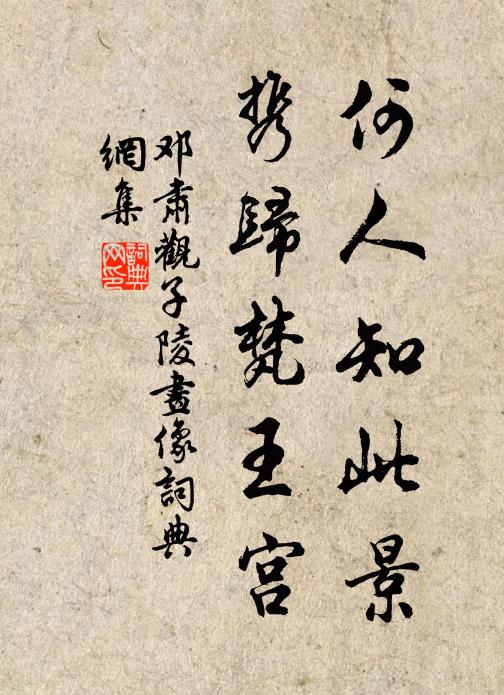 何人知此景
携歸梵王宫
邓肃觀子陵畫像詞典
網集
詞典
网印